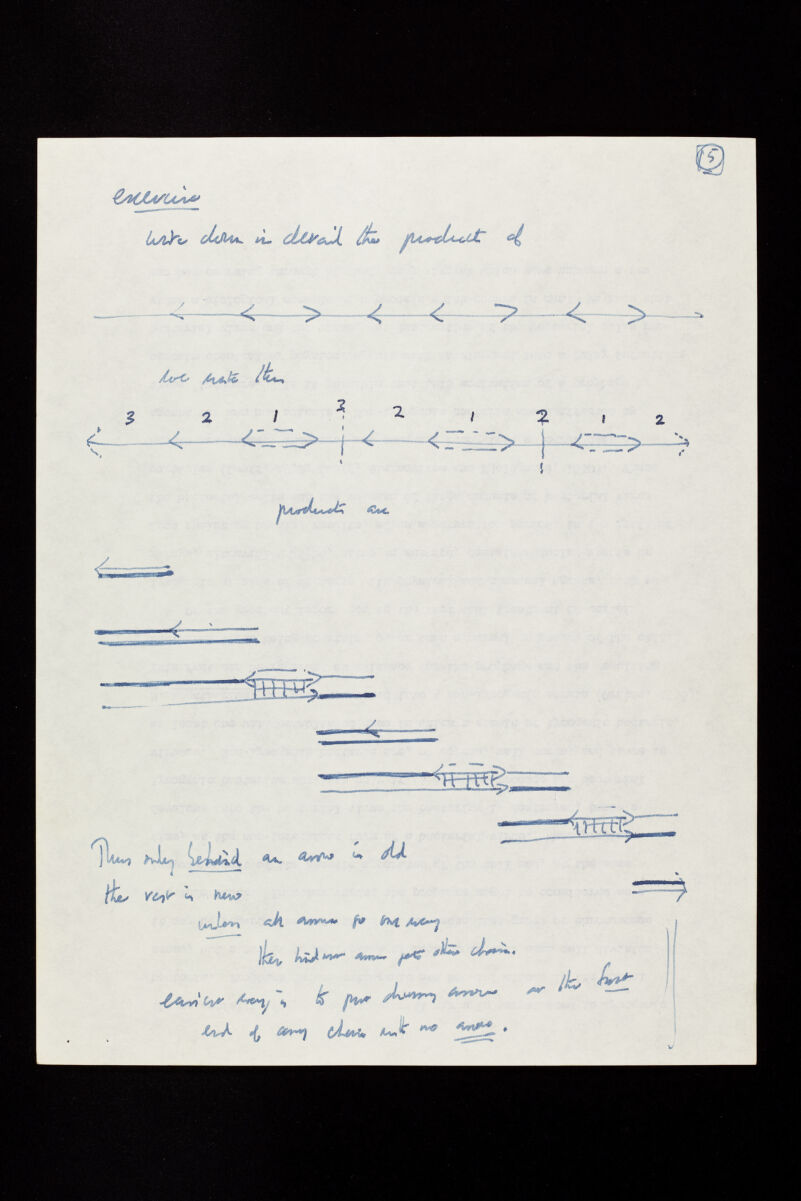 5
exercise
write down in detail the products of
we write this
3 2 1 3 2 1 2 1 2
products are
Thus only behind an arrow is old
the rest is new
unless all arrows go one way
then hindmost arrow gets other chain.
easier way is to put dummy arrow on the first
end of any chain with no arrow.